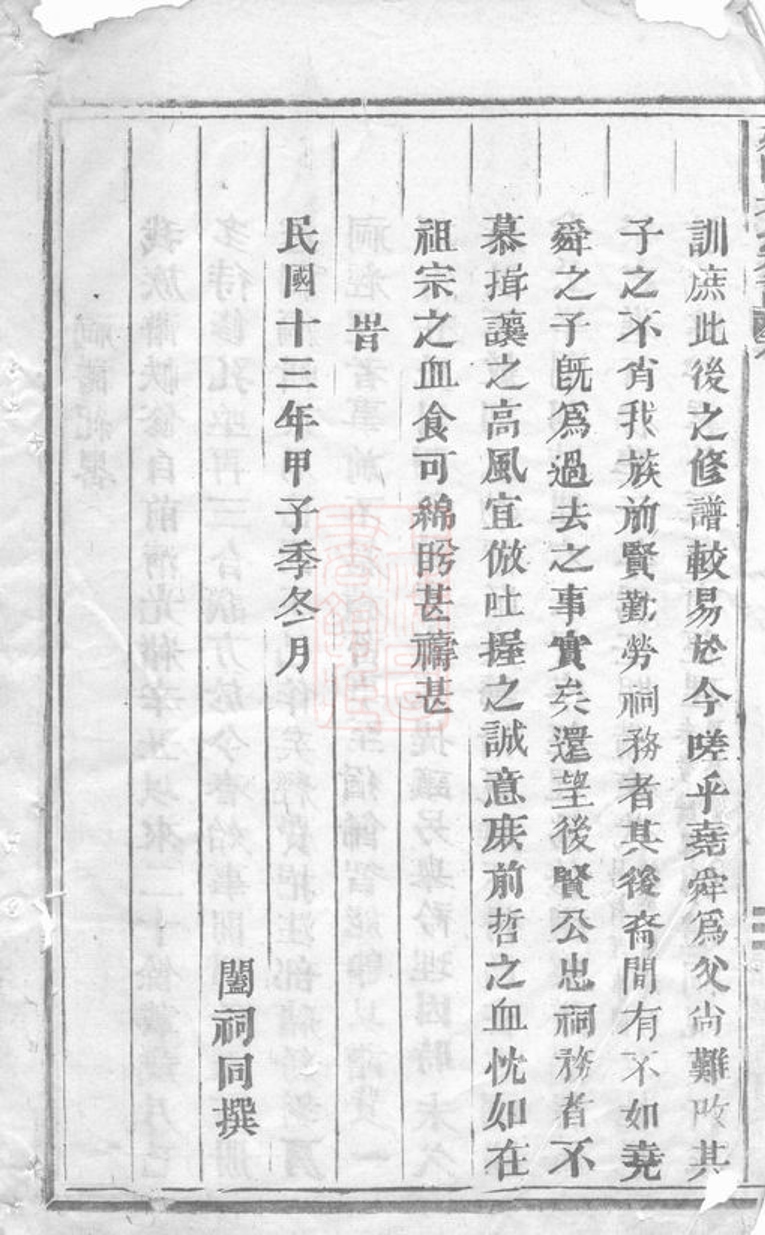 訓庶此後之修譜較易於今嗟乎堯舜為父尚難改其
子之不肖我族前賢勤勞祠務者其後裔間有不如堯
舜之子既為過去之事實矣還望後賢公出祠務者不
慕揖讓之高風宜倣吐握之誠意庶前哲之血忱如在
祖宗之血食可綿昐甚禱甚
旹
民國十三年甲子季冬月
闔祠同撰